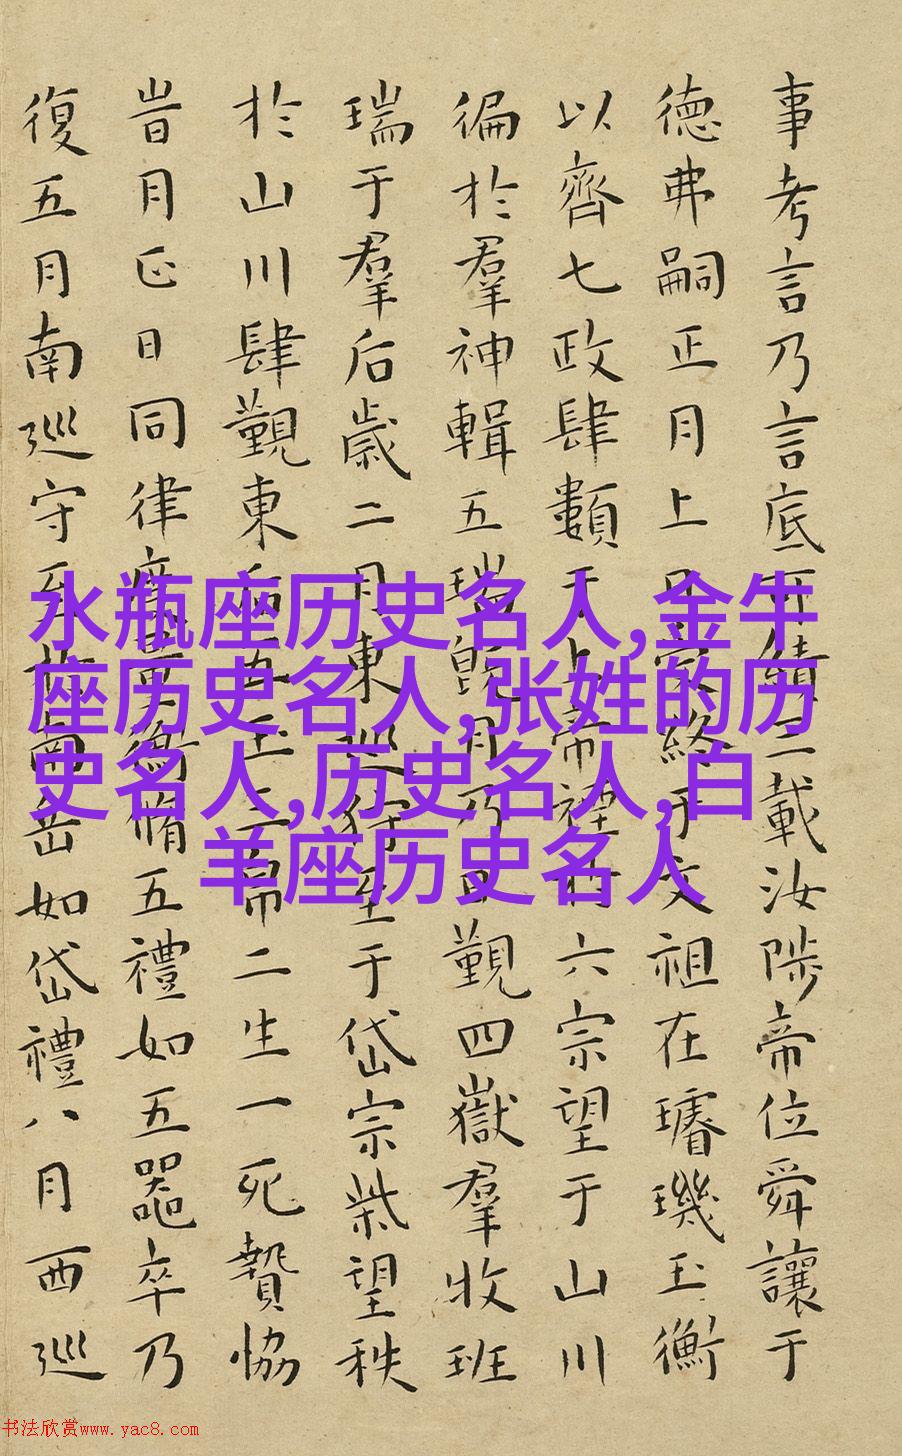 事考言乃言底可績三載汝陟帝位舜讓于
德弗嗣正月上日受終于文祖在璿璣玉衡
以齊七政肆類于上帝禋于六宗望于山川
徧於羣神輯五瑞旣月乃日覲四嶽羣牧班
瑞于羣后歲二月東巡狩至于岱宗柴望秩
於山川肆覲東后五玉三帛二生一死贄協
旹月正日同律度量衡脩五禮如五器卒乃
復五月南巡守至于南岳如岱禮八月西巡
水瓶座历史名人,金牛
座历史名人,张姓的历
史名人,历史名人,白
羊座历史名人
书法欣赏www.yac8.com